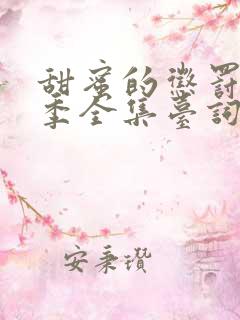 甜蜜的懲罰
季全集臺詞
安秉瓚